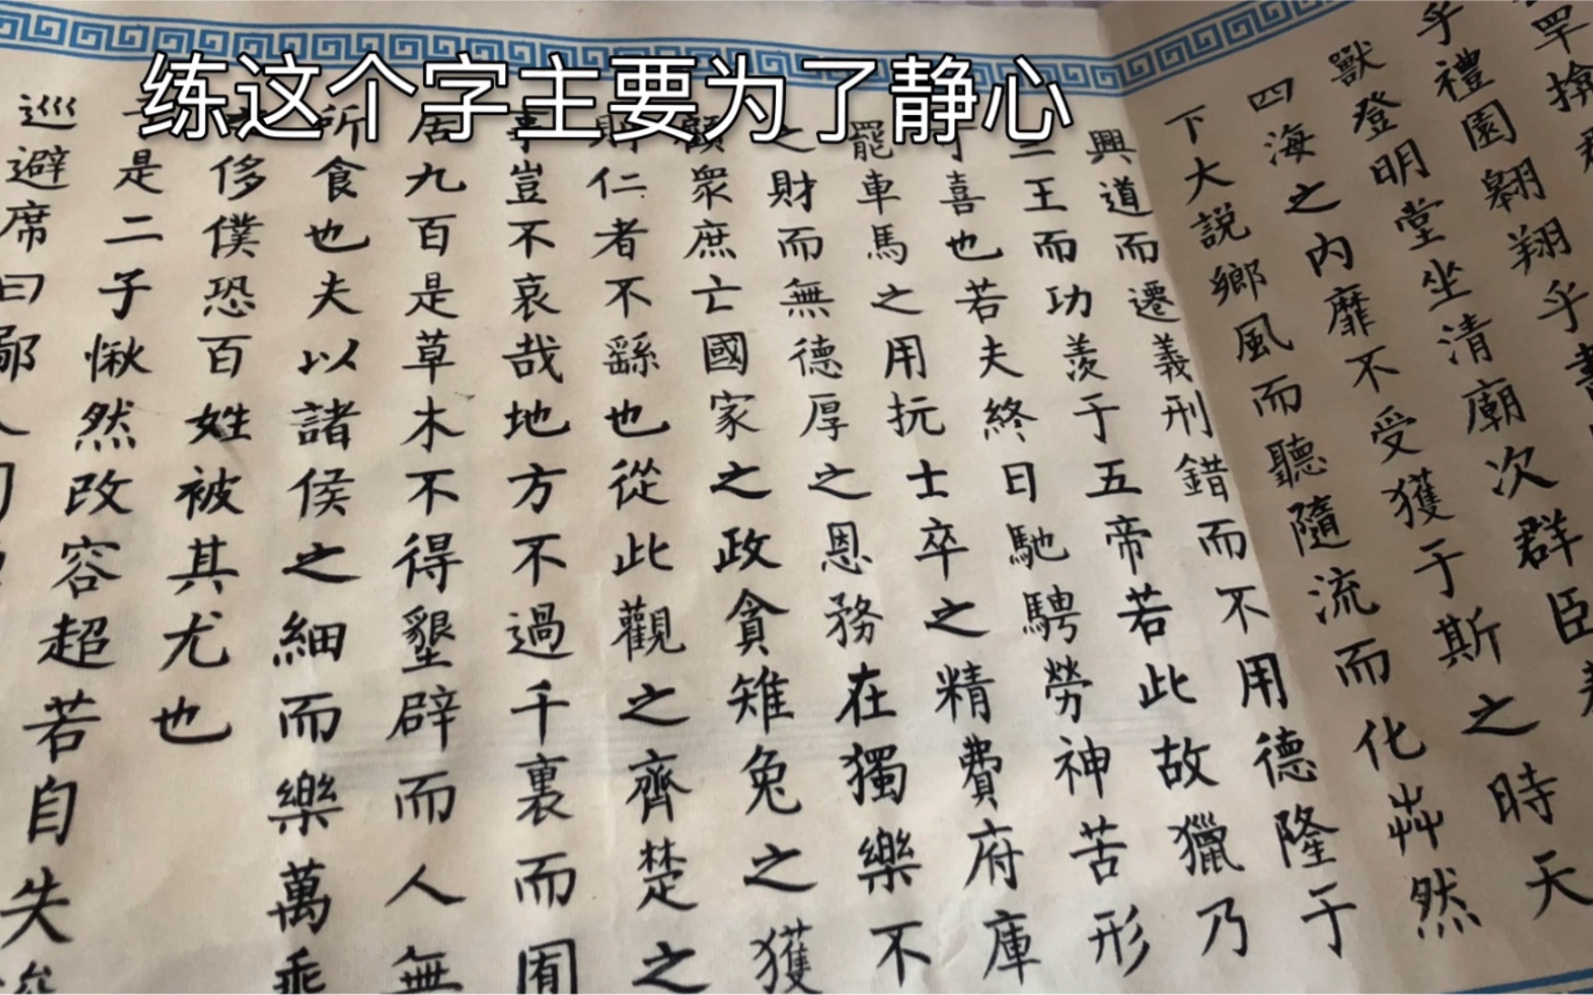 练这个字主要为了静心
罕掩
乎禮園翱翔乎
獸登明堂坐清廟次群臣
四海之内靡不受獲于斯之時天
下大説鄉風而聽隨流而化芔然
興道而遷義刑錯而不用德隆于
三王而功羨于五帝若此故獵乃
喜也若夫終日馳騁勞神苦形
罷車馬之用抏士卒之精費府庫
之財而無德厚之恩務在獨樂不
顧衆庶亡國家之政貪雉兔之獲
則仁者不繇也從此觀之齊楚之
事豈不哀哉地方不過千裏而囿
居九百是草木不得墾辟而人無
所食也夫以諸侯之細而樂萬乘
侈僕恐百姓被其尤也
是二子愀然改容超若自失
巡避席曰鄙人